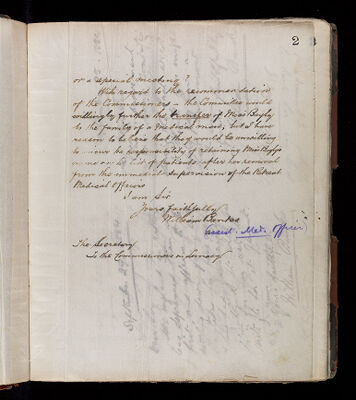 2
or a special meeting?
With regard to the recommendation
of the Commissioners - the Committee would
willingly further the transfer of Miss Bayly
to the family of a medical man, but I have
reason to believe that they would be unwilling
to incur the responsibility of retaining Miss Bayly's
name on the list of patients after her removal
from the immediate supervision of the Retreat
Medical Officers
I am Sir
Yours faithfully
Assist. Med. Officer
The Secretary
to the Commissioners in Lunacy